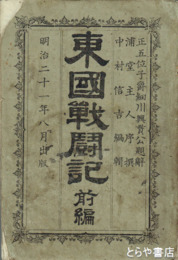 正五位子爵細川興貫公題辞
浦堂主人序撰
中村信吉編輯
東國戰鬪記
前編
明治二十一年八月出版
とらや書店